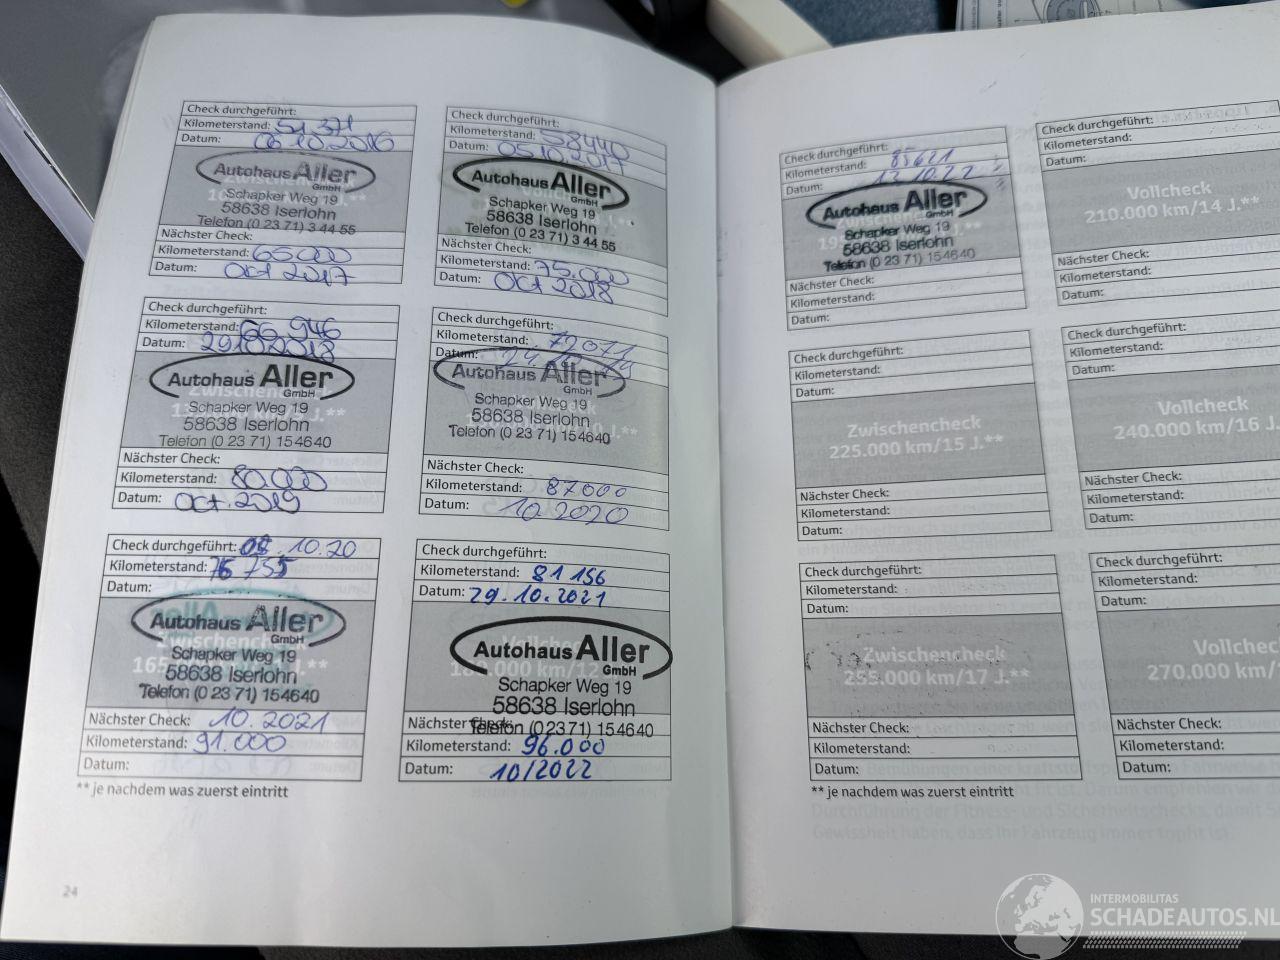 Check durchgeführt:
Kilometerstand: 51 371
Datum: 06.10.2016
Autohaus Aller
GmbH
Schapker Weg 19
58638 Iserlohn
Telefon (0 23 71) 3 44 55
Nächster Check:
Kilometerstand: 65000
Datum: Oct 2017
Check durchgeführt:
Kilometerstand: 58440
Datum: 05.10.2017
Autohaus Aller
GmbH
Schapker Weg 19
58638 Iserlohn
Telefon (0 23 71) 3 44 55
Nächster Check:
Kilometerstand: 75.000
Datum: Oct 2018
Check durchgeführt:
Kilometerstand: 66 946
Datum: 29.10.2018
Autohaus Aller
GmbH
Schapker Weg 19
58638 Iserlohn
Telefon (0 23 71) 154640
Nächster Check:
Kilometerstand: 80.000
Datum: Oct. 2019
Check durchgeführt:
Kilometerstand: 72071
Datum:
Autohaus Aller
GmbH
Schapker Weg 19
58638 Iserlohn
Telefon (0 23 71) 154640
Nächster Check:
Kilometerstand: 87000
Datum: 10 2020
Check durchgeführt: 08.10.20
Kilometerstand: 76 755
Datum:
Autohaus Aller
GmbH
Zwischencheck
Schapker Weg 19
58638 Iserlohn
Telefon (0 23 71) 154640
Nächster Check: 10.2021
Kilometerstand: 91.000
Datum:
Check durchgeführt:
Kilometerstand: 81 156
Datum: 29.10.2021
Autohaus Aller
GmbH
Schapker Weg 19
58638 Iserlohn
Telefon (0 23 71) 154640
Nächster Check:
Kilometerstand: 96.000
Datum: 10/2022
** je nachdem was zuerst eintritt
24
Check durchgeführt:
Kilometerstand: 85621
Datum: 12.10.22
Autohaus Aller
GmbH
Schapker Weg 19
58638 Iserlohn
Telefon (0 23 71) 154640
Nächster Check:
Kilometerstand:
Datum:
Check durchgeführt:
Kilometerstand:
Datum:
Vollcheck
210.000 km/14 J.**
Nächster Check:
Kilometerstand:
Datum:
Check durchgeführt:
Kilometerstand:
Datum:
Zwischencheck
225.000 km/15 J.**
Nächster Check:
Kilometerstand:
Datum:
Check durchgeführt:
Kilometerstand:
Datum:
Vollcheck
240.000 km/16 J.
Nächster Check:
Kilometerstand:
Datum:
Check durchgeführt:
Kilometerstand:
Datum:
Zwischencheck
255.000 km/17 J.**
Nächster Check:
Kilometerstand:
Datum:
Check durchgeführt:
Kilometerstand:
Datum:
Vollchec
270.000 km/1
Nächster Check:
Kilometerstand:
Datum:
** je nachdem was zuerst eintritt
INTERMOBILITAS
SCHADEAUTOS.NL